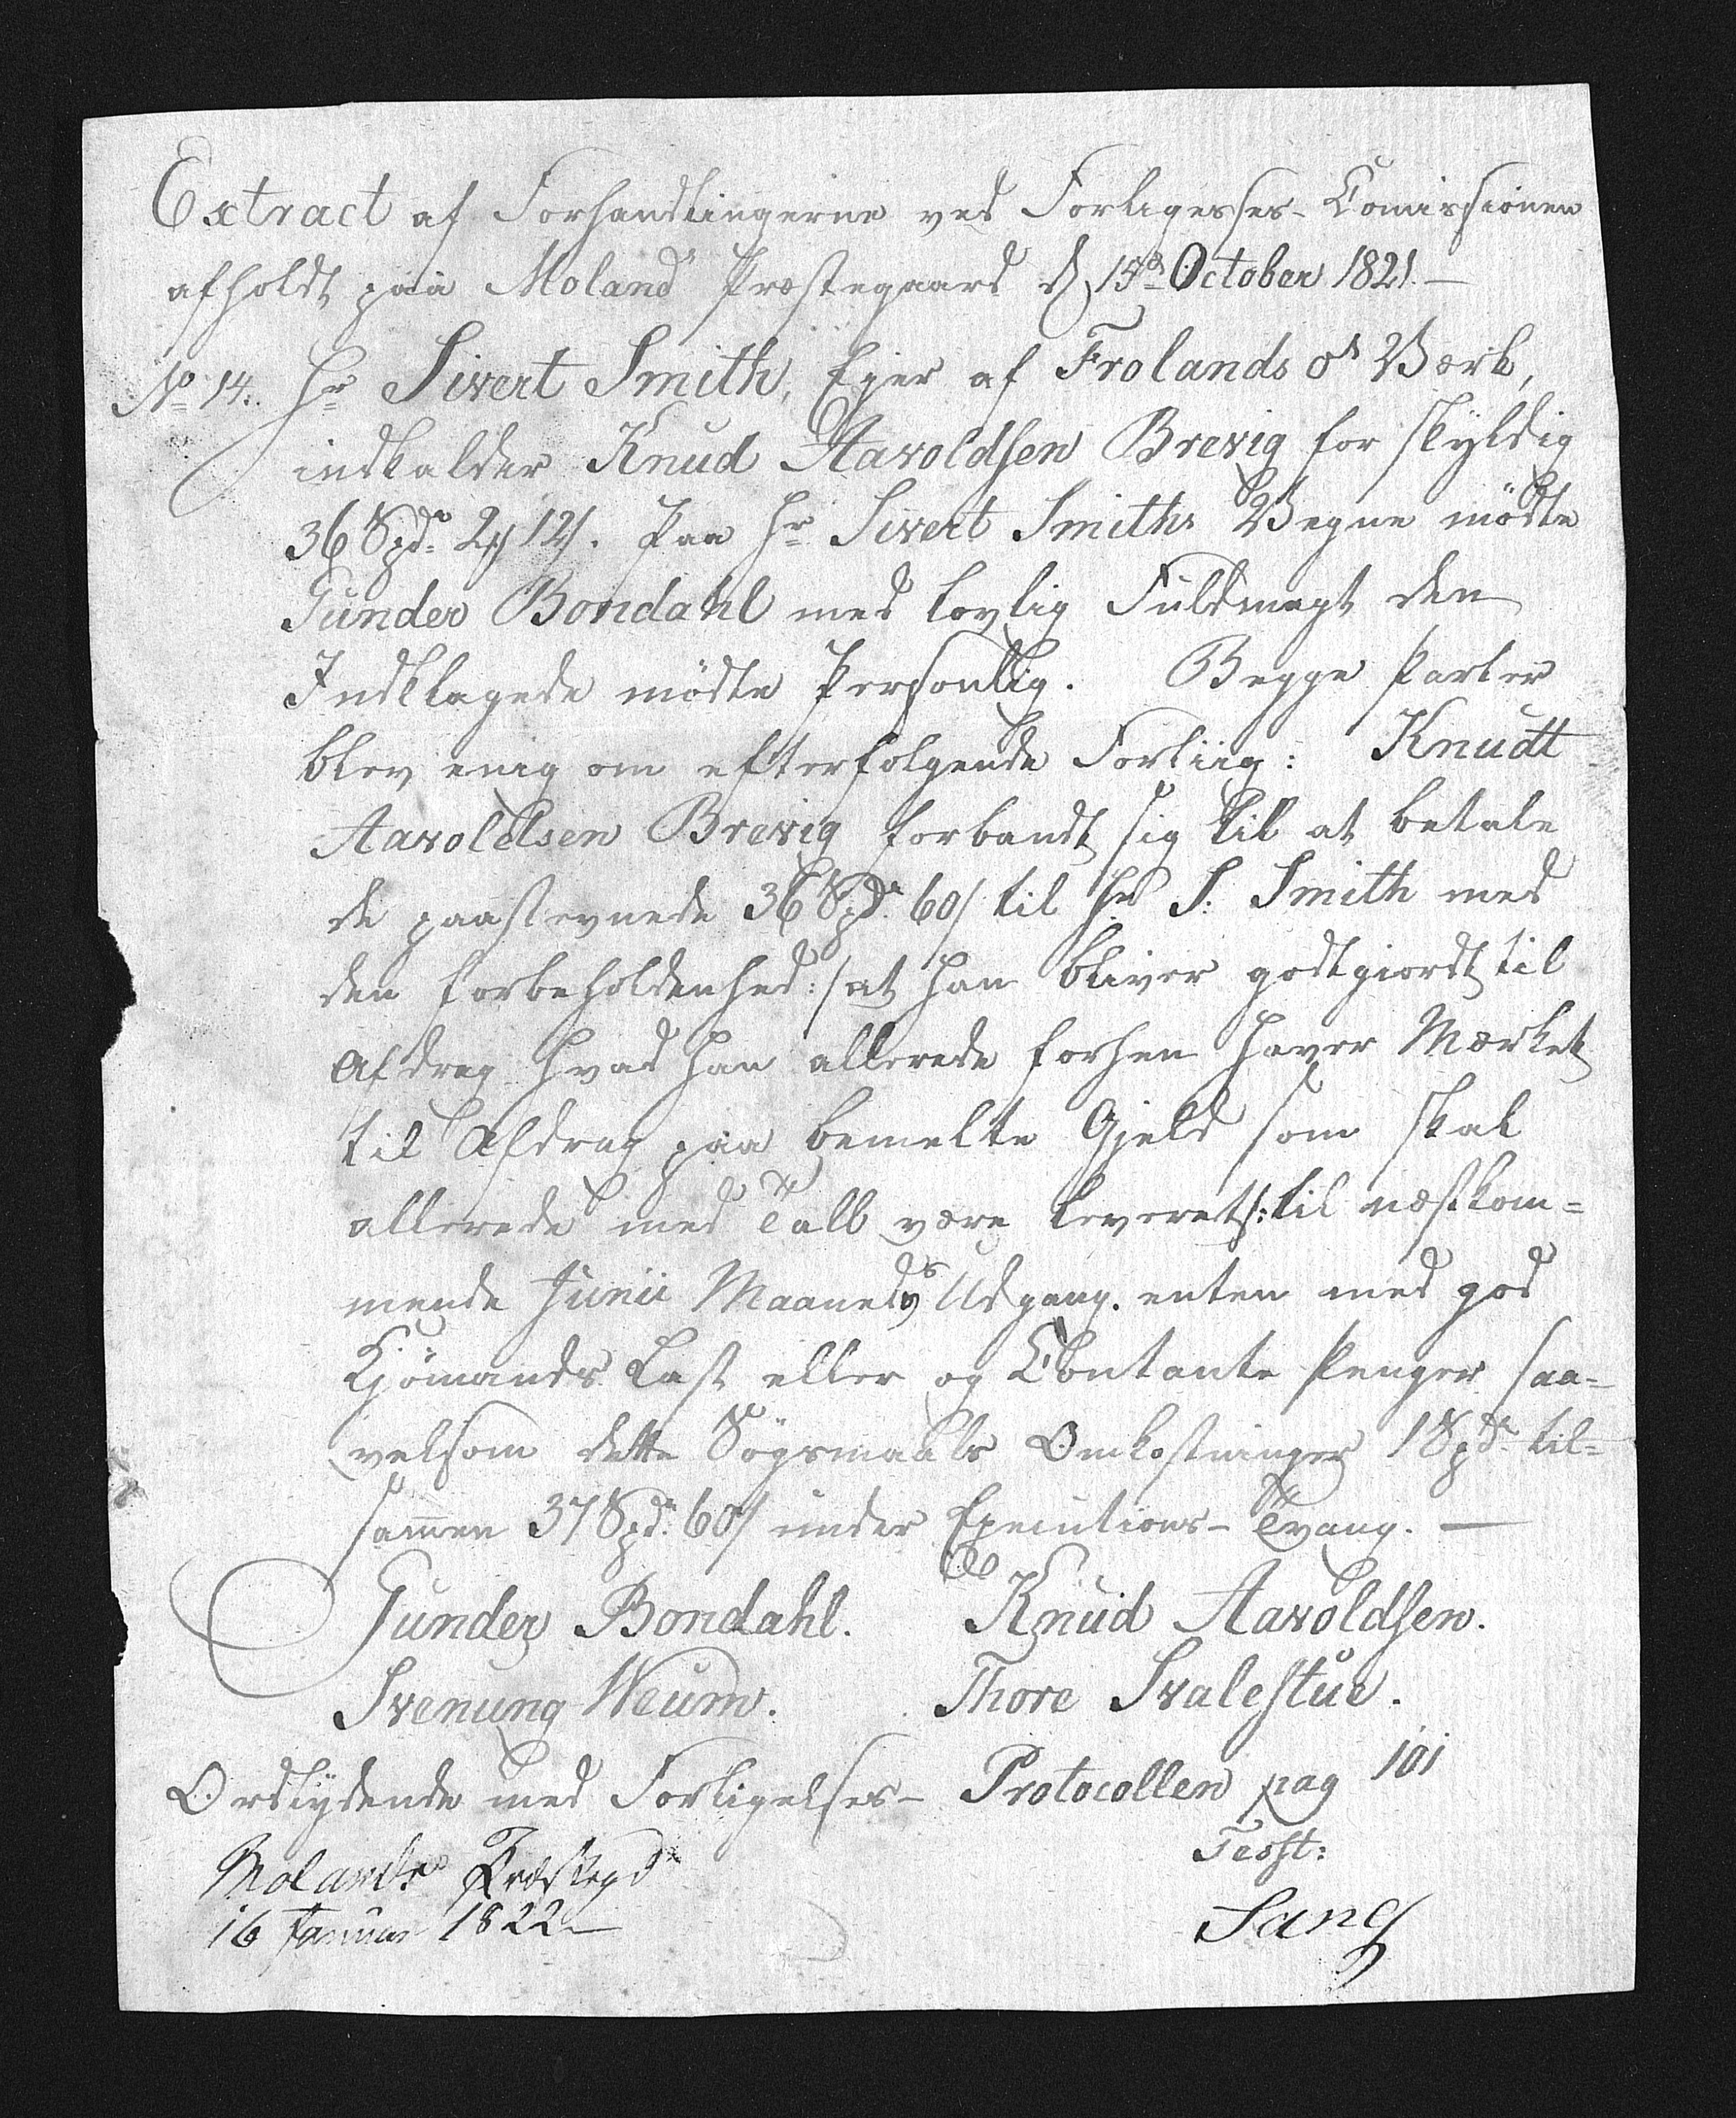 Extract af Forhandlingerne ved Forligesses-Comissionen
afholdt paa Moland Præstegaard d 15de October 1821.—
No 14. Hr Sivert Smith, Ejer af Frolands ♂s Værk,
indkalder Knud Aavoldsen Brevig for skyldig
36 Spdr 2 12 s. Paa Hr Sivert Smiths Vegne mødte
Gunder Bondahl med lovlig Fuldmagt den
Indklagede mødte Personlig. Begge Parter
blev enig om efterfølgende Forliig: Knudt
Aavoldsen Brevig forbandt sig til at betale
de paastevnede 36 Spdr. 60 s til Hr S. Smith med
den forbeholdenhed :/at han bliver godtgiordt til
Afdrag hvad han allerede forhen haver Mærket
til Afdrag paa bemelte Gjeld som skal
allerede med Tall være leveret/: til næstkom=
mende Junii Maaneds Udgang. enten med god
Kjømands Last eller og Contante Penger saa=
velsom dette Søgsmaals Omkostninger 1 Spdr. til=
sammen 37 Spdr. 60 s under Executions-Tvang.—
Gunder Bondahl. Knud Aavoldsen.
Svenung Neum. Thore Svalestue.
Ordlydende med Forligelses-Protocollen pag 101
Testt:
Molands Præstegd
16 Januar 1822 —
Sang